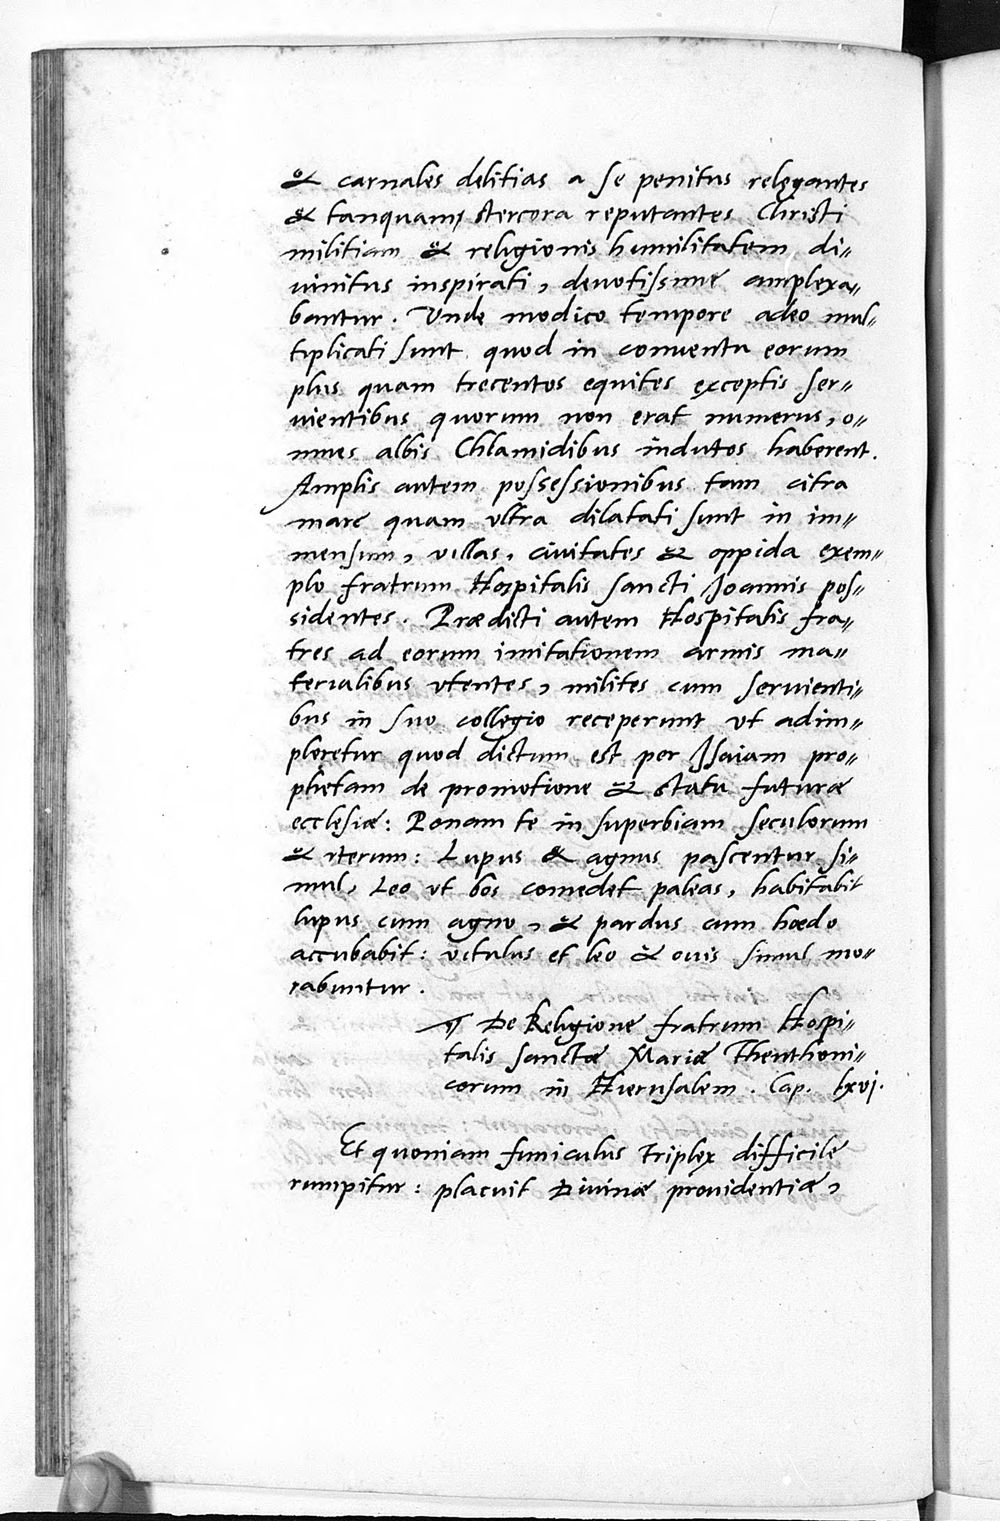 & carnales delitias a se penitus relęgantes
& tanquam stercora reputantes Christi
militiam & religionis humilitatem di„
uinitus inspirati, deuotissime amplexa„
bantur. Unde modico tempore adeo mul„
tiplicati sunt quod in conuentu eorum
plus quam trecentos equites exceptis ser„
uientibus quorum non erat numerus, o„
mnes albis Chlamidibus indutos haberent.
Amplis autem possessionibus tam citra
mare quam vltra dilatati sunt in im„
mensum, villas, ciuitates & oppida exem„
plo fratrum Hospitalis sancti Joannis pos„
sidentes. Prædicti autem Hospitalis fra„
tres ad eorum imitationem armis ma„
terialibus vtentes, milites cum seruienti„
bus in suo collegio receperunt vt adim„
pleretur quod dictum est per Jsaiam pro„
phetam de promotione & statu futuræ
ecclesiæ: Ponam te in superbiam seculorum
& iterum: Lupus & agnus pascentur si„
mul, Leo vt bos comedet paleas, habitabit
lupus cum agno, & pardus cum hœdo
accubabit: vitulus et leo & ouis simul mo„
rabuntur.
¶ De Religione fratrum Hospi„
talis sanctæ Mariæ Thenthoni„
corum in Hierusalem. Cap. lxvi.
Et quoniam funiculus triplex difficile
rumpitur: placuit Diuinæ prouidentiæ,